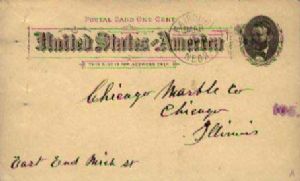 POSTAL CARD ONE CENT
United States of America
THIS SIDE IS FOR ADDRESS ONLY.
Chicago Marble Co
Chicago
Illinois
East End Mich st